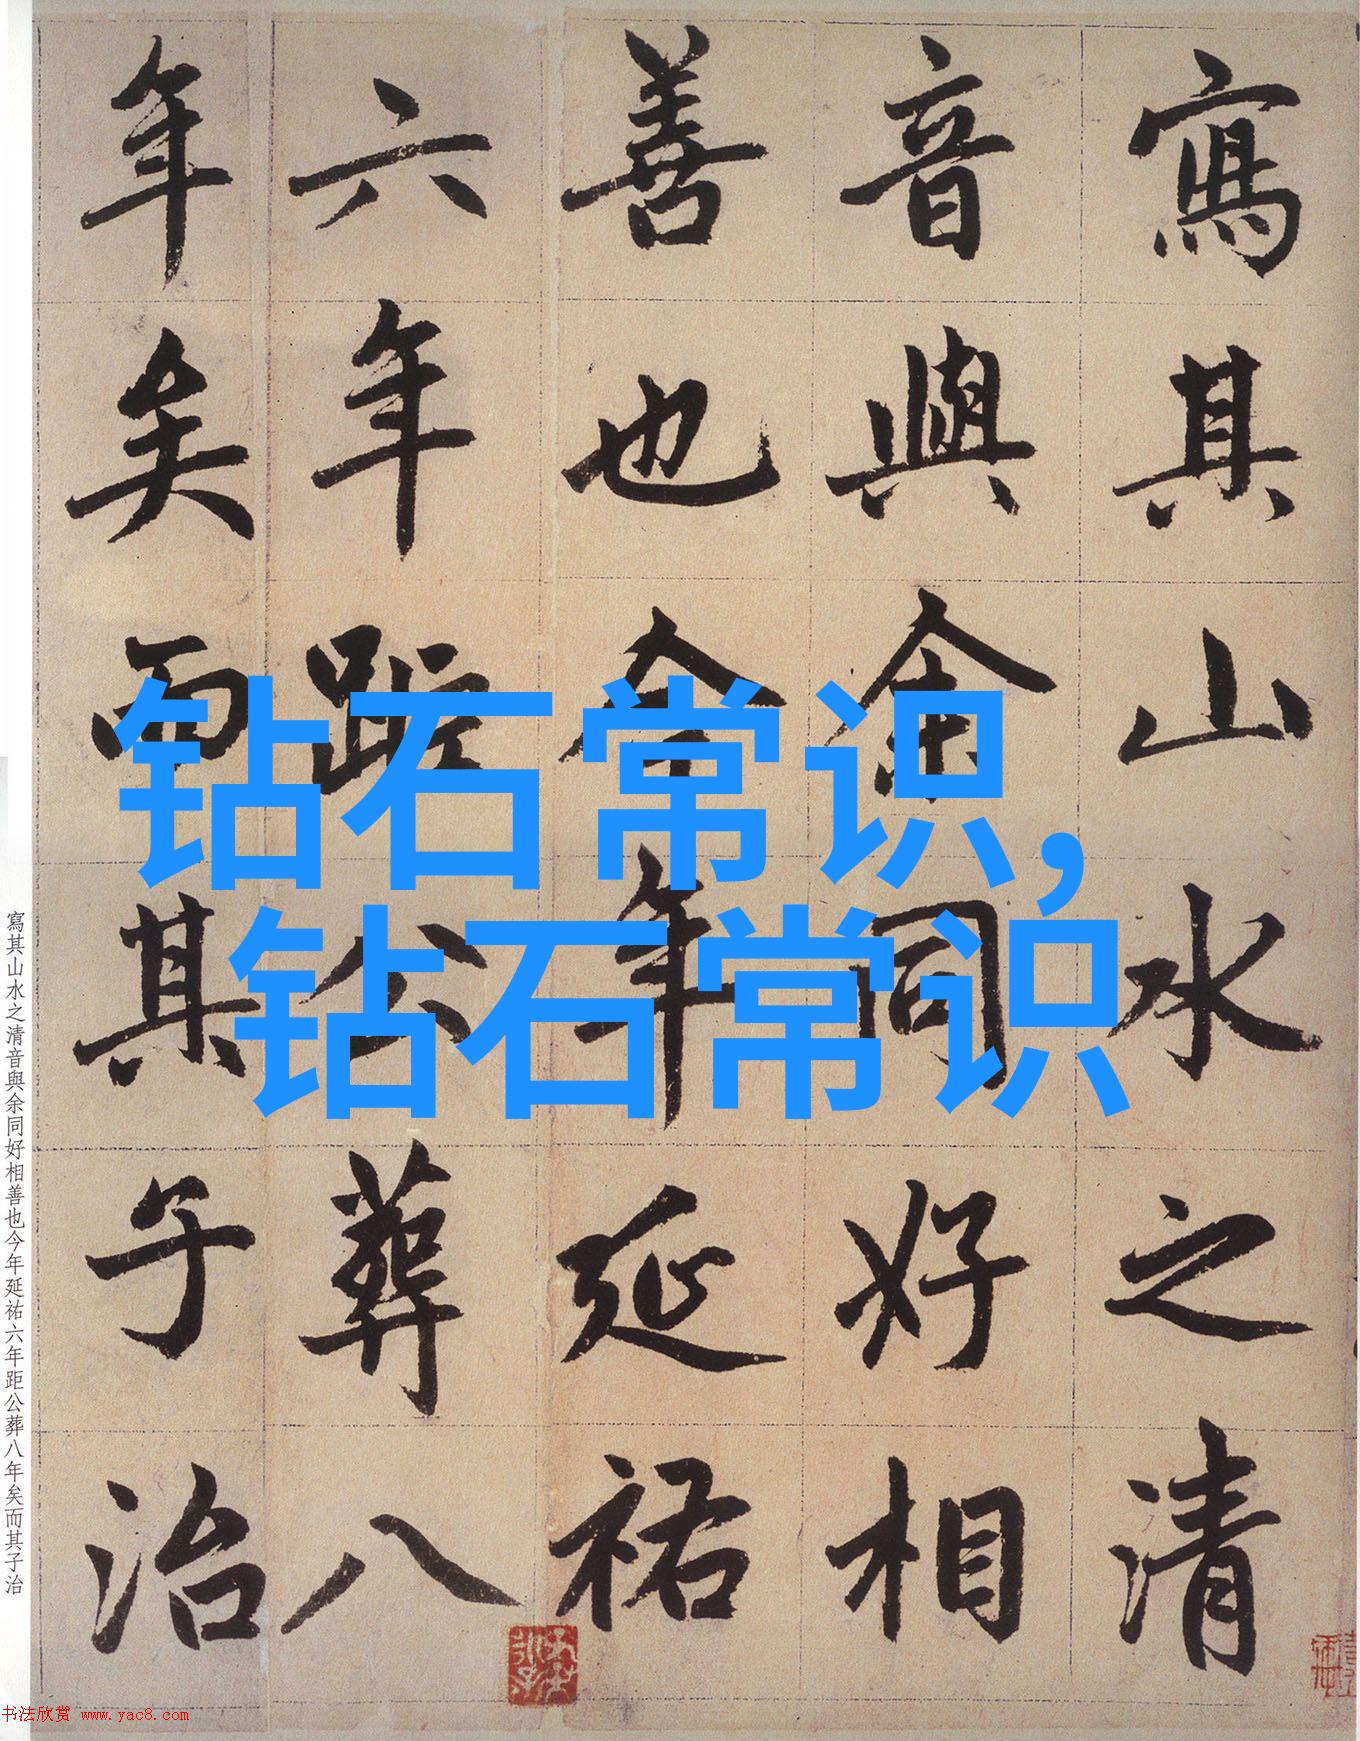 寫其山水之清
音與余同好相
善也今年延祐
六年距公葬八
年矣而其子治
钻石常识,
钻石常识
寫其山水之清音與余同好相善也今年延祐六年距公葬八年矣而其子治
书法欣赏 www.yac8.com